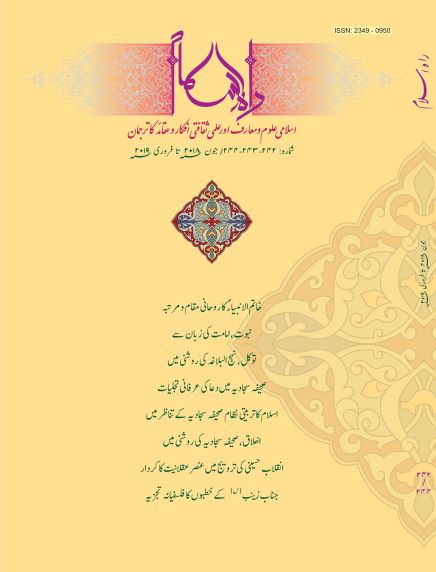 ISSN: 2349 - 0950
راہ اسلام
اسلامی علوم و معارف اور علمی ثقافتی افکار و عقائد کا ترجمان
شمارہ: ۲۴۲-۲۴۳-۲۴۴/ جون ۲۰۱۸ تا فروری ۲۰۱۹
خاتم الانبیاءؐ کا روحانی مقام و مرتبہ
نبوت، امامت کی زبان سے
توکل، نہج البلاغہ کی روشنی میں
صحیفہ سجادیہ میں دعا کی عرفانی تجلیات
اسلام کا تربیتی نظام صحیفہ سجادیہ کے تناظر میں
اخلاق، صحیفہ سجادیہ کی روشنی میں
انقلاب حسینی کی ترویج میں عنصر عقلانیت کا کردار
جناب زینب (س) کے خطبوں کا فلسفیانہ تجزیہ
راہ اسلام
جون ۲۰۱۸ تا فروری ۲۰۱۹
۲۴۲
/
۲۴۴